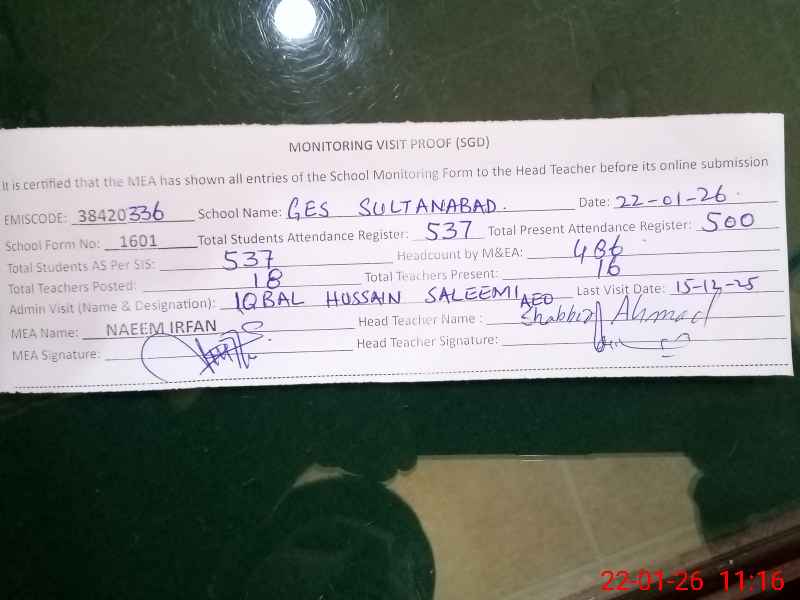 MONITORING VISIT PROOF (SGD)
It is certified that the MEA has shown all entries of the School Monitoring Form to the Head Teacher before its online submission
EMISCODE: 38420336 School Name: GES SULTANABAD. Date: 22-01-26.
School Form No: 1601 Total Students Attendance Register: 537 Total Present Attendance Register: 500
Total Students AS Per SIS: 537 Headcount by M&EA: 486
Total Teachers Posted: 18 Total Teachers Present: 16
Admin Visit (Name & Designation): IQBAL HUSSAIN SALEEMI, AEO Last Visit Date: 15-12-25
MEA Name: NAEEM IRFAN Head Teacher Name : Shabbir Ahmad
MEA Signature: Head Teacher Signature:
22-01-26 11:16